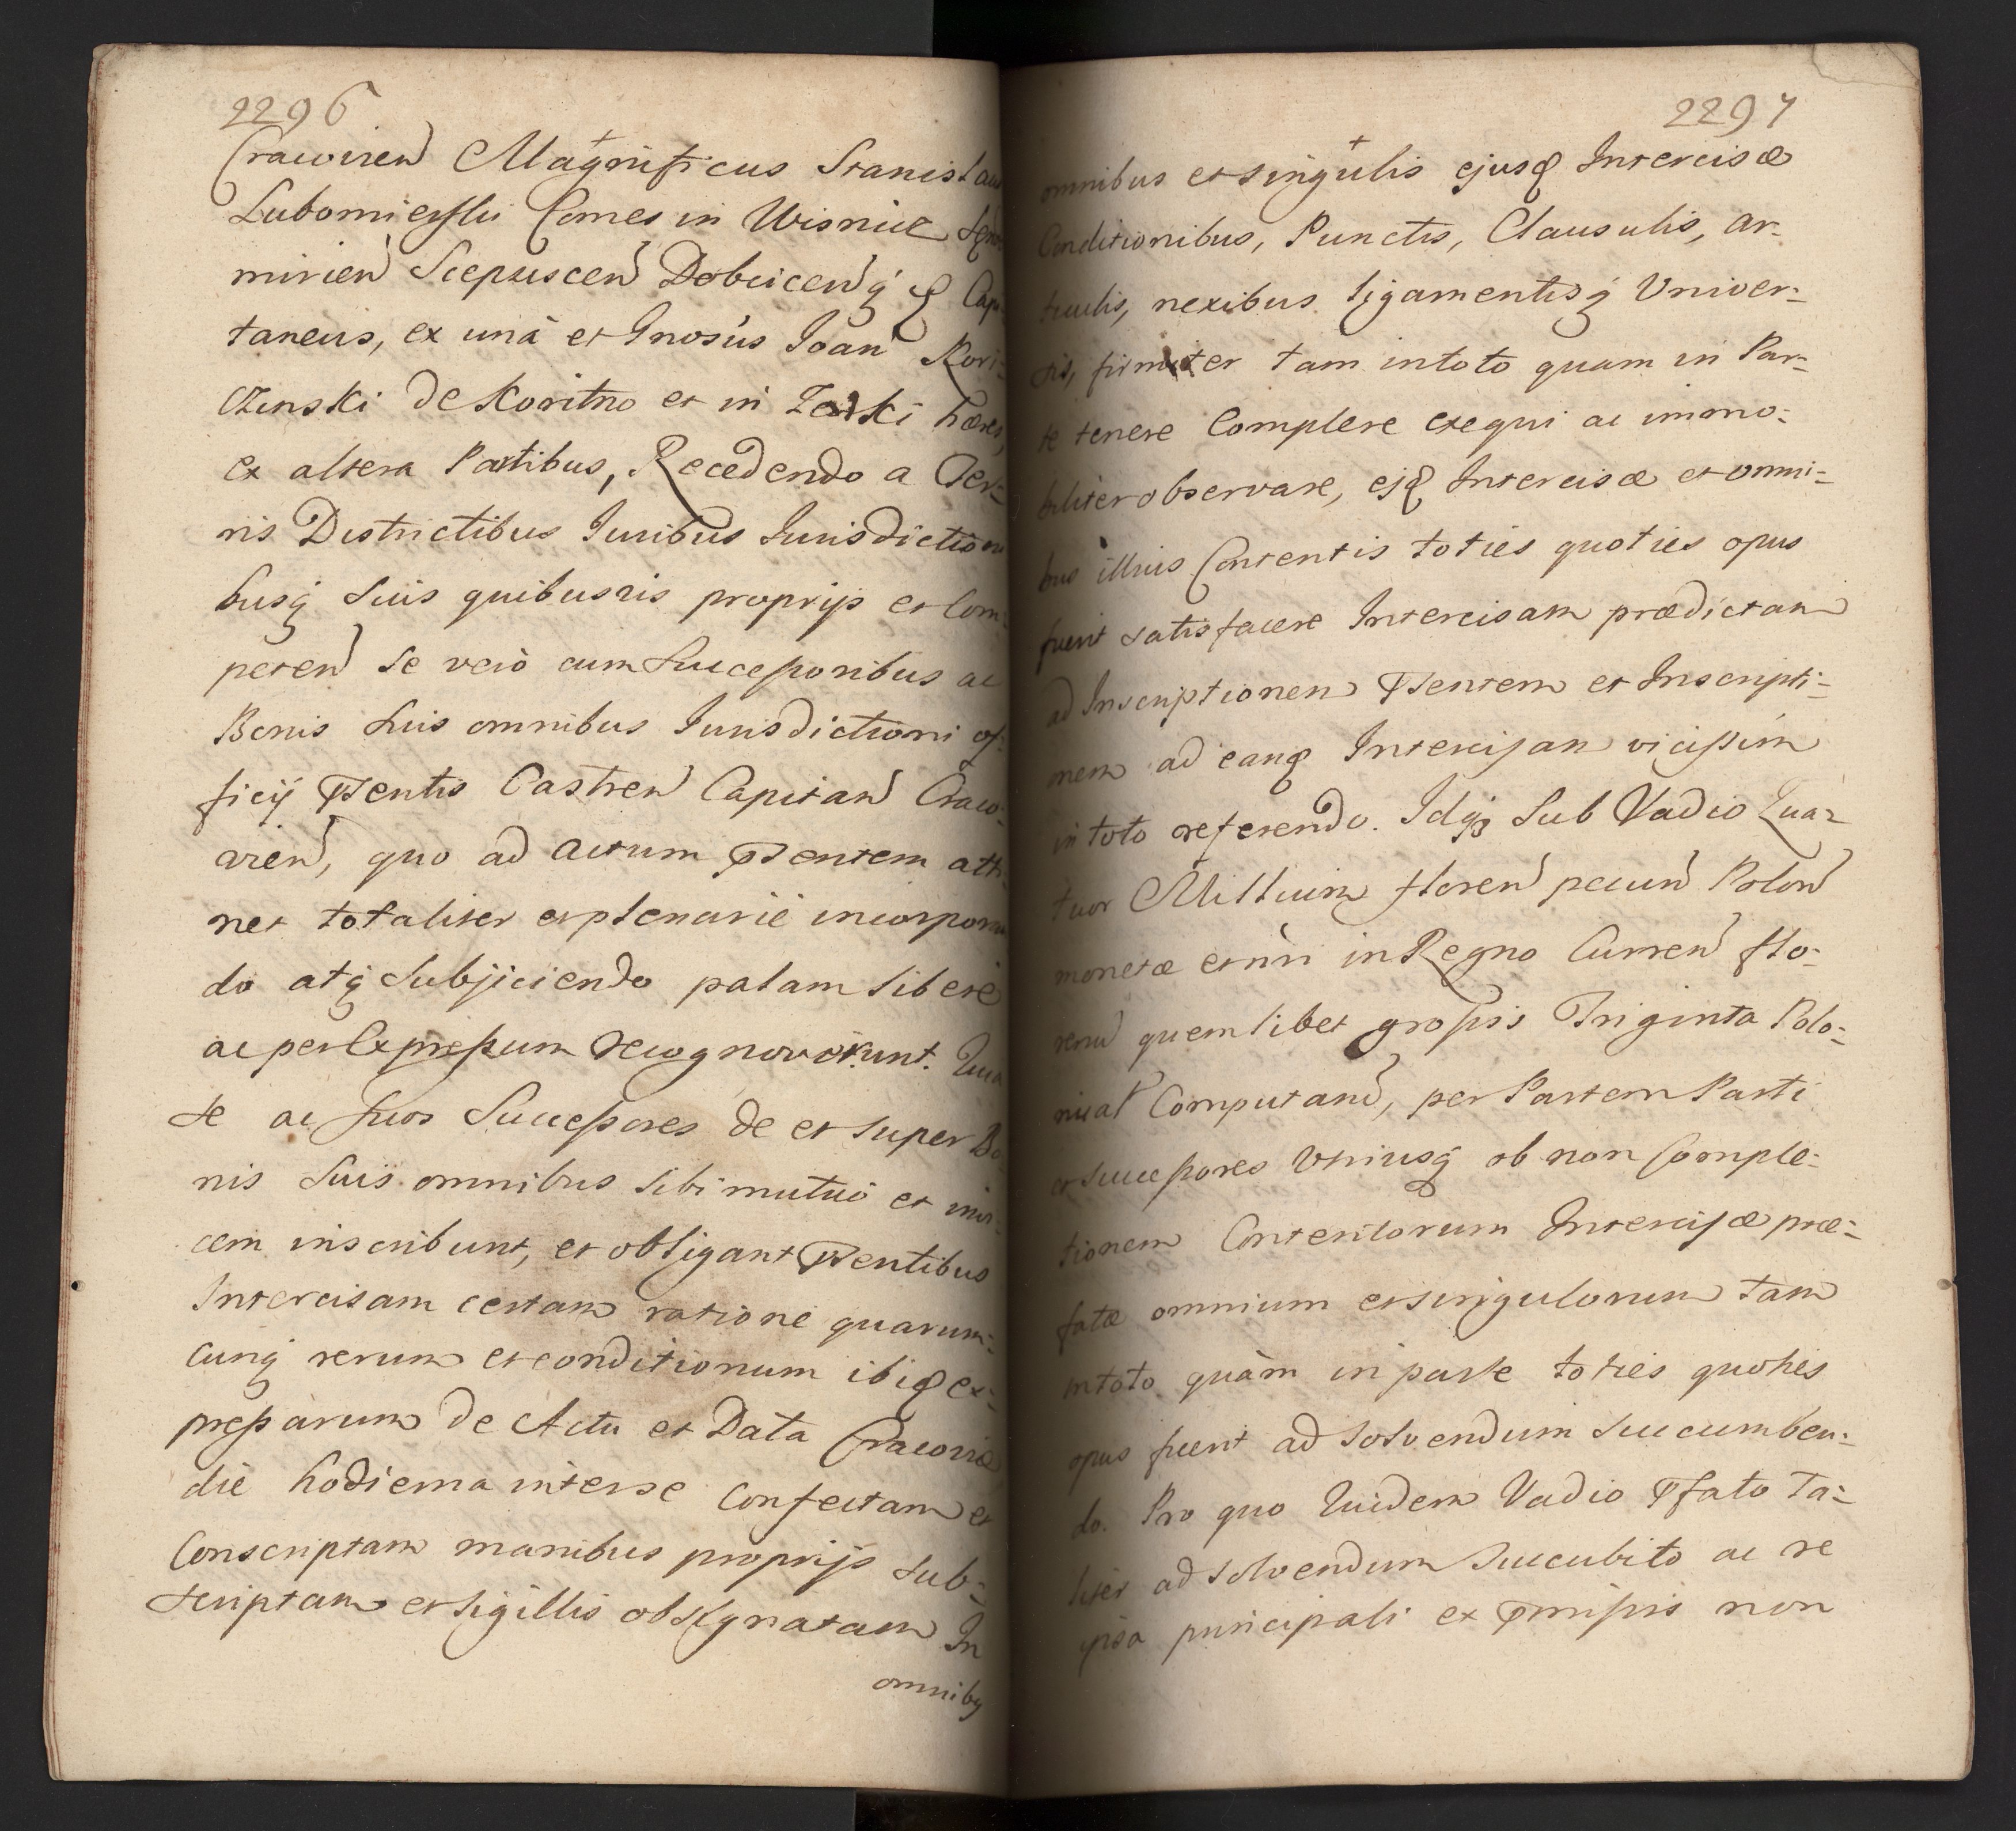 2296
Cracovien Magnificus Stanislaus
Lubomierski Comes in Wisnicz
mirien Scepuscen Dobcicenq Capi
taneus, ex unâ et Gnosus Joan Kori-
czinski de Koritno et in Zarki hæres,
ex altera Partibus, Recedendo a Ter-
ris Districtibus Juribus Jurisdictioni
busq Suis quibusvis proprijs et Com-
peten Se verò cum Successoribus ac
Bonis Suis omnibus Jurisdictioni of-
ficij Psentis Castren Capitan Craco-
vien, quo ad actum Psentem atti-
net totaliter et plenarie incorporan
do atq Subjiciendo palam liberè
ac per Expressum recognoverunt. Quia
se ac Suos Successores de et super Bo-
nis Suis omnibus sibi mutuò et invi-
cem inscribunt, et obligant Psentibus
Intercisam certam ratione quarum-
cunq rerum et conditionum ibiq ex-
pressarum de Actu et Data Cracoviæ
die hodierna inter se Confectam et
Conscriptam manibus proprijs Sub-
scriptam et Sigillis obsignatam In
omnibq
2297
omnibus et singulis ejusq Intercisæ
Conditionibus, Punctis, Clausulis, ar-
ticulis, nexibus ligamentisq Univer-
sis, firmiter tam in toto quam in Par-
te tenere Complere exequi ac immo-
biliter observare, ejq Intercisæ et omni-
bus illius Contentis toties quoties opus
fuerit satisfacere Intercisam prædictam
ad Inscriptionem Psentem et Inscripti-
nem ad eanq Intercisam vicissim
in toto referendo. Idq Sub Vadio Qua-
tuor Millium floren pecun Polon
monetæ et nri in Regno Curren flo-
renu quemlibet grossis Triginta Polo-
nical Computand, per Partem Parti
et Successores Utriusq ob non Comple-
tionem Contentorum Intercisæ præ-
fatæ omnium et singulorum tam
in toto quàm in parte toties quoties
opus fuerit ad Solvendum Succumben-
do. Pro quo Quidem Vadio Pfato Ta-
liter ad Solvendum Succubito ac re
ipsa principali ex Pmissis non